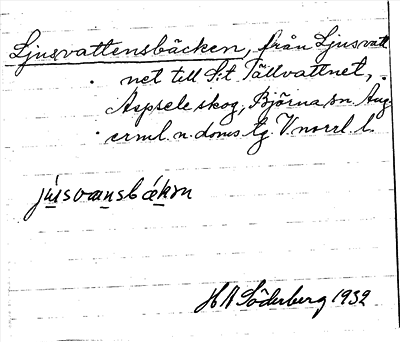 Ljusvattensbäcken, från Ljusvatt
net till S:t Tällvattnet,
Aspsele skog, Björna sn. Ång
erml. n. doms tg. V. norrl. l.
júsvansbǽkǝn
H A Söderberg 1932